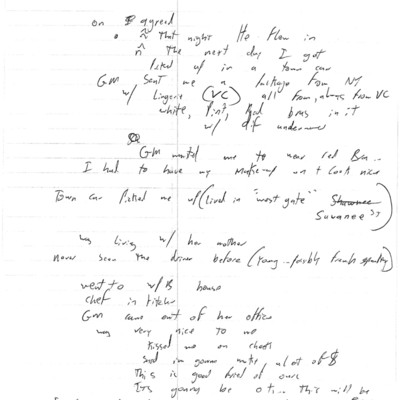 on agreed
that night He flew in
the next day I got
Picked up in a town car
GM sent me a Package from NY
w/ Lingerie (VC) all from, always from VC
white, Pink, Red bras in it
w/ dif underwear
GM wanted me to wear red Bra...
I had to have my make-up on + Look nice
Town car picked me up (lived in "west gate" Suwanee)
was living w/ her mother
never seen the driver before (young
went to house
chef in kitchen
GM came out of her office
was very nice to me
Kissed me on cheek
Said im gonna make a lot of $
This is good friend of ours
Its gonna be This will be